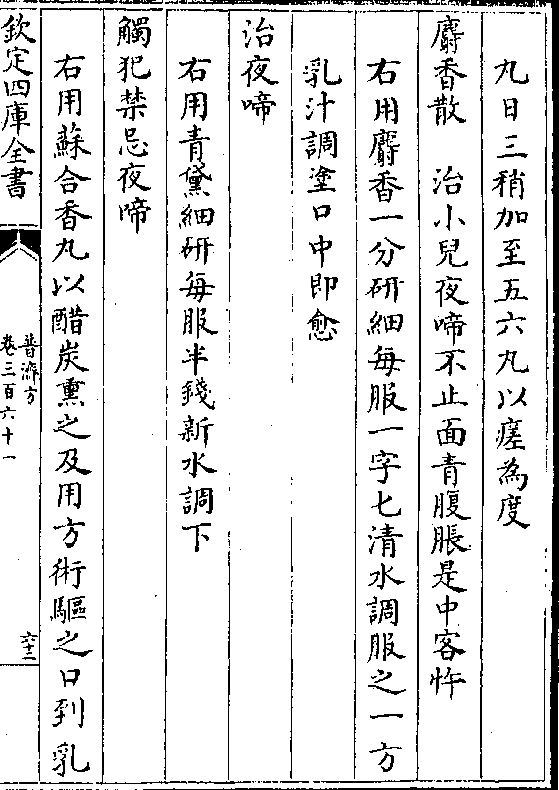 九日三稍加至五六丸以瘥為度
麝香散　治小兒夜啼不止面青腹脹是中客忤
右用麝香一分研細每服一字七清水調服之一方
乳汁調塗口中即愈
治夜啼
右用青黛細研每服半錢新水調下
觸犯禁忌夜啼
右用蘇合香丸以醋炭熏之及用方術驅之口到乳
欽定四庫全書
普濟方
卷三百六十一
六十二